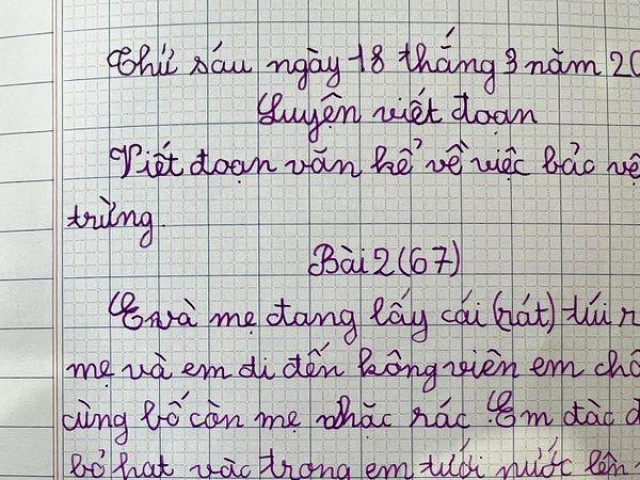 Thứ sáu ngày 18 tháng 3 năm 20
Luyện viết đoạn
Viết đoạn văn kể về việc bảo vệ
trừng.
Bài 2 (67)
E và mẹ đang lấy cái (rát) túi r
mẹ và em di đến kông viên em
cùng bố còn mẹ nhặc rác. Em đàc
bỏ hạt vàc trong em tưới nước lên